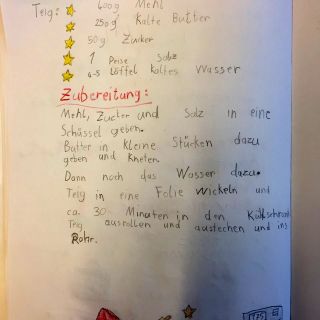 Teig: 600g Mehl
250g Kalte Butter
50g Zucker
1 Prise Salz
4-5 Löffel kaltes Wasser
Zubereitung:
Mehl, Zucker und Salz in eine
Schüssel geben.
Butter in kleine Stücken dazu
geben und kneten.
Dann noch das Wasser dazu.
Teig in eine Folie wickeln und
ca. 30 Minuten in den Kühlschrank
Teig ausrollen und austechen und ins
Rohr.